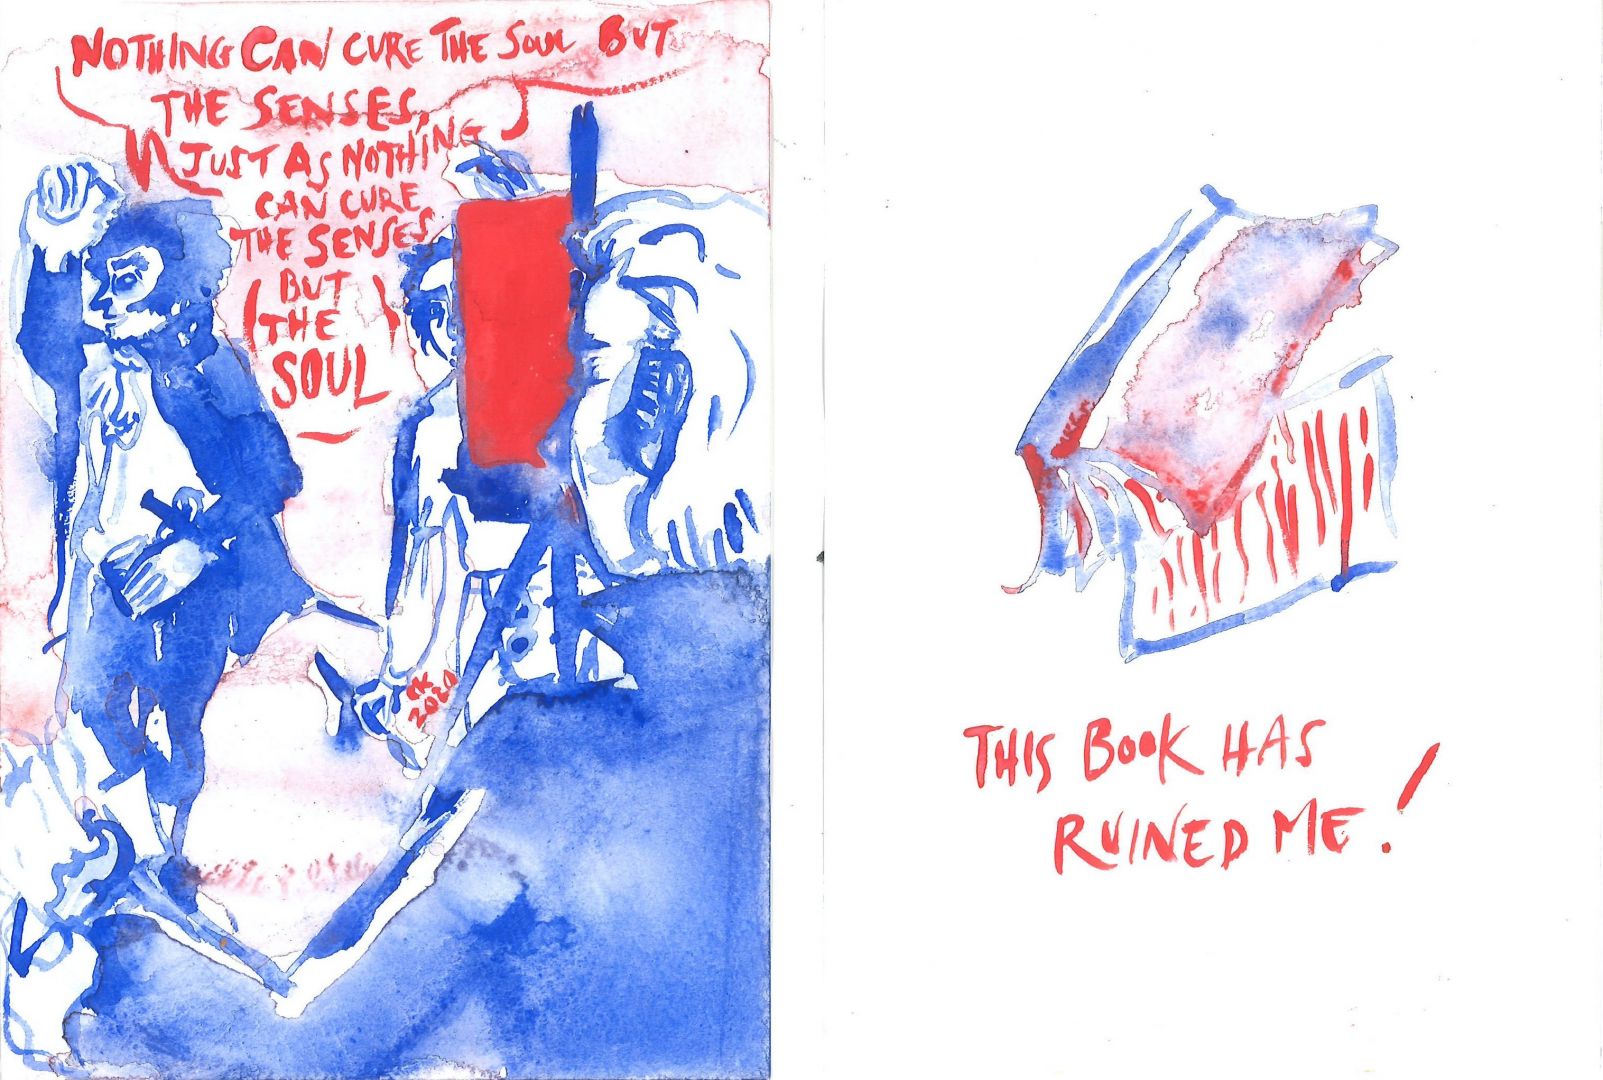 NOTHING CAN CURE THE SOUL BUT
THE SENSES,
JUST AS NOTHING
CAN CURE
THE SENSES
BUT
THE
SOUL
2020
THIS BOOK HAS
RUINED ME!